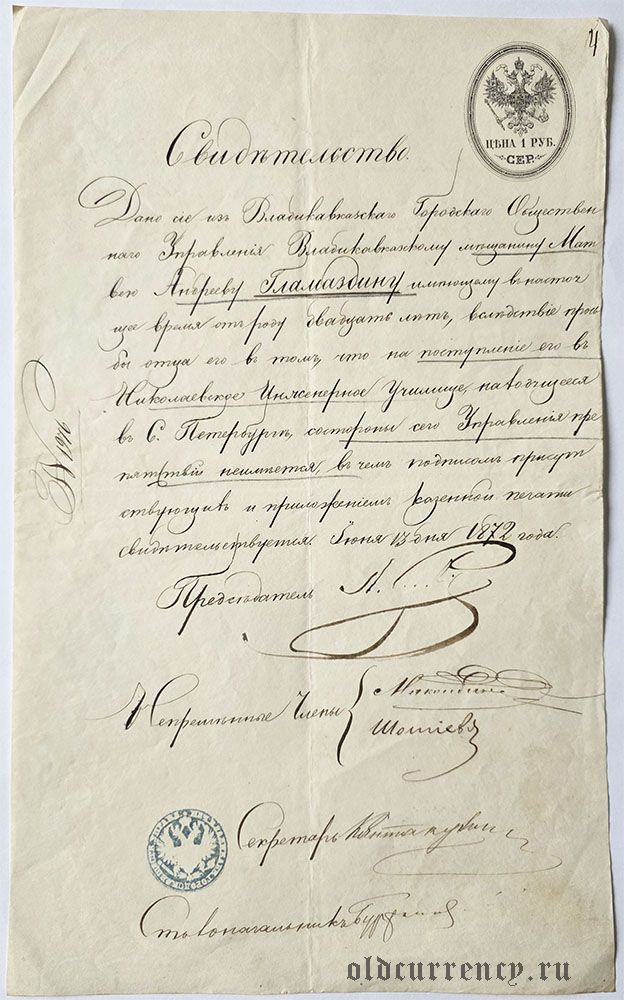 4
ЦѢНА 1 РУБ.
СЕР.
Свидѣтельство.
Дано сіе изъ Владикавказскаго Городскаго Обществен
наго Управленія Владикавказскому мѣщанину Мат
вею Андрееву Гламаздину имѣющему въ настоя
щее время отъ роду двадцать лѣтъ, вслѣдствіе прось
бы отца его въ томъ, что на поступленіе его въ
Николаевское Инженерное Училище, находящееся
въ С. Петербургѣ, состороны сего Управленія пре
пятствій неимѣется, въ чемъ подписомъ присут
ствующихъ и приложеніемъ казенной печати
свидѣтельствуется. Іюня 13 дня 1872 года.
№
Предсѣдатель
Непремѣнные Члены
Шошіевъ
Секретарь
Столоначальникъ
oldcurrency.ru